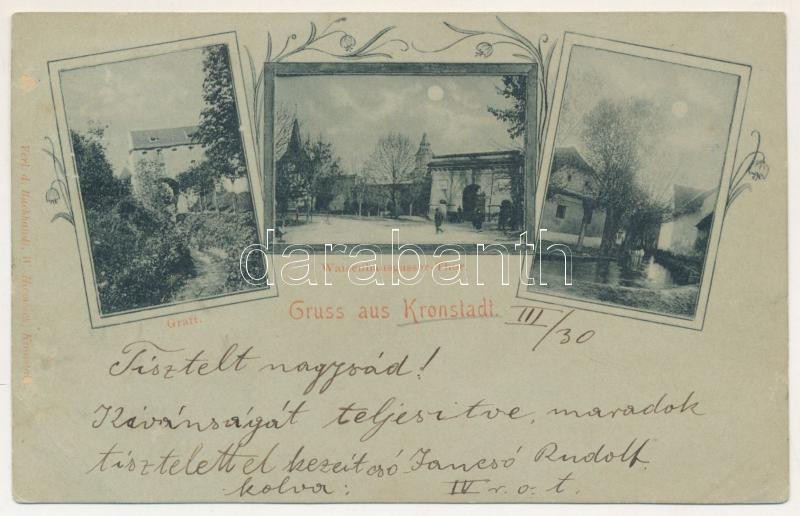 Verl. d. Buchhandl. W. Hiemesch, Kronstadt
Graft.
Waisenhausgasser-Thor.
darabanth
.com
Gruss aus Kronstadt. III/30
Tisztelt nagysád!
Kivánságát teljesitve, maradok
tisztelettel kezeit csó Jancsó Rudolf
kolva: IV r. o. t.